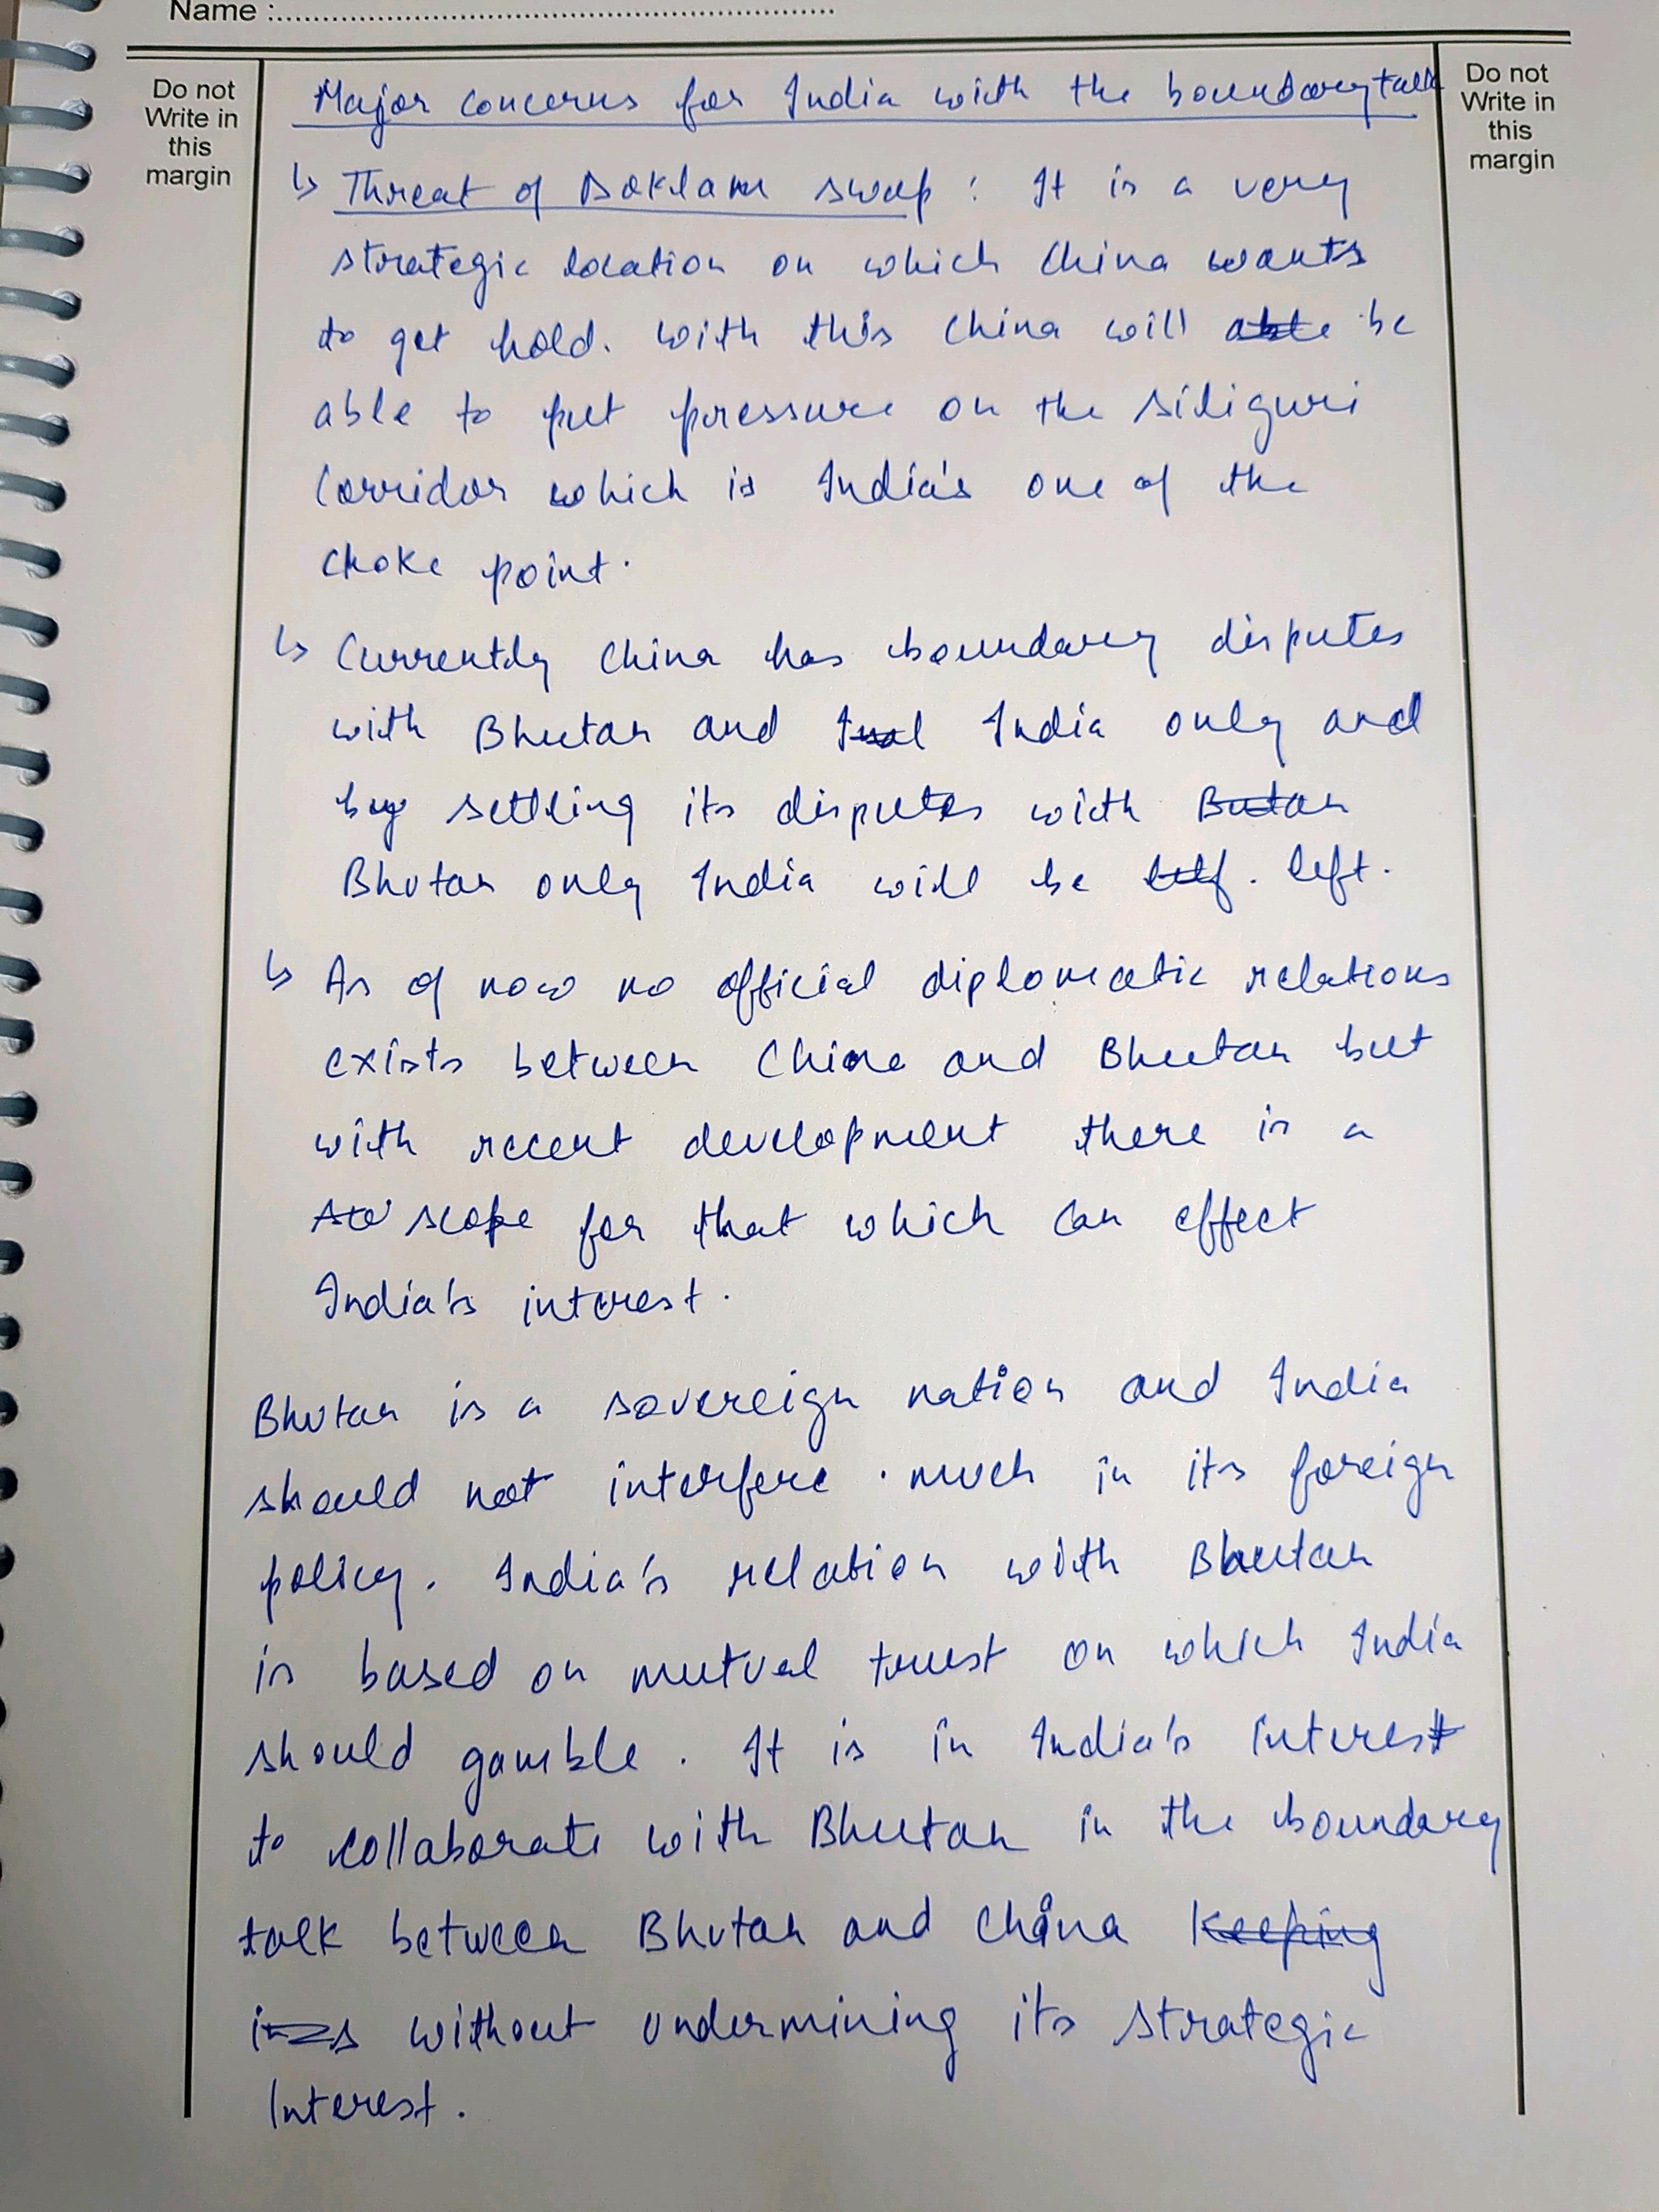 Name :
Do not
Write in
this
margin
Do not
Write in
this
margin
Major concerns for India with the boundary talk
↳ Threat of Doklam swap : It is a very
strategic location on which China wants
to get hold. With this China will able be
able to put pressure on the Siliguri
Corridor which is India's one of the
choke point.
↳ Currently China has boundary disputes
with Bhutan and India only and
by settling its disputes with Butan
Bhutan only India will be left.
↳ As of now no official diplomatic relations
exists between China and Bhutan but
with recent development there is a
scope for that which can effect
India's interest.
Bhutan is a sovereign nation and India
should not interfere much in its foreign
policy. India's relation with Bhutan
is based on mutual trust on which India
should gamble. It is in India's interest
to collaborate with Bhutan in the boundary
talk between Bhutan and China keeping
without undermining its strategic
Interest.